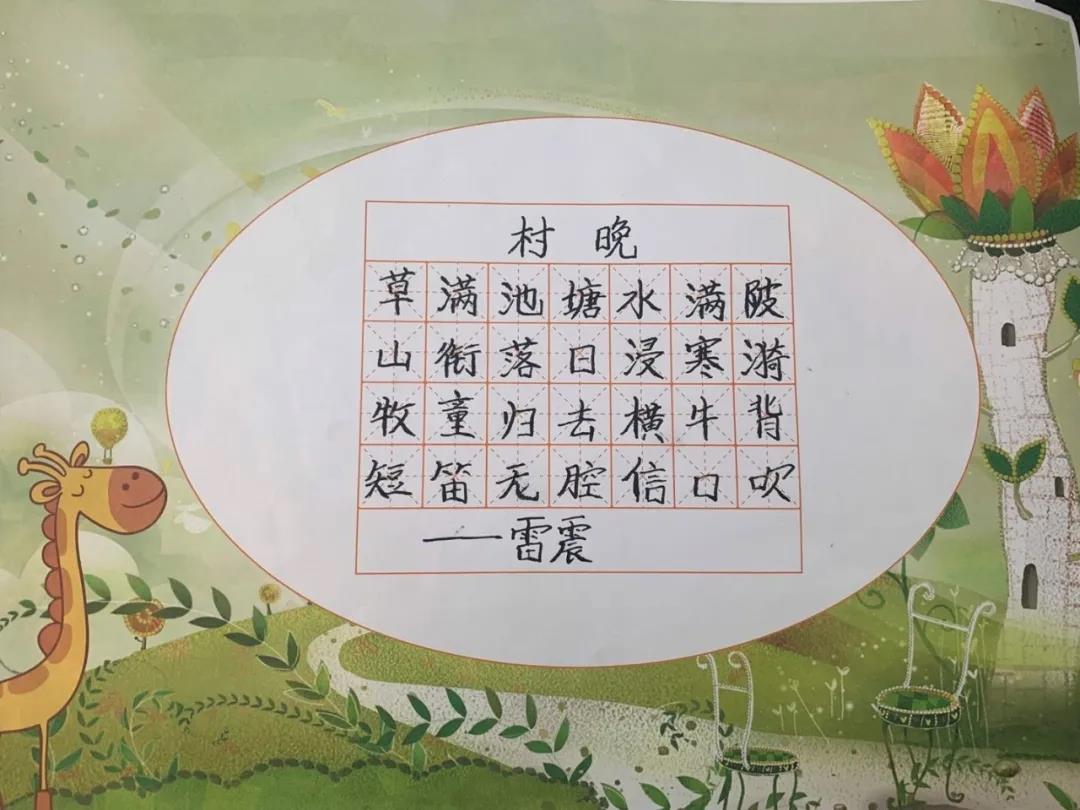 村 晚
草满池塘水满陂
山衔落日浸寒漪
牧童归去横牛背
短笛无腔信口吹
——雷震